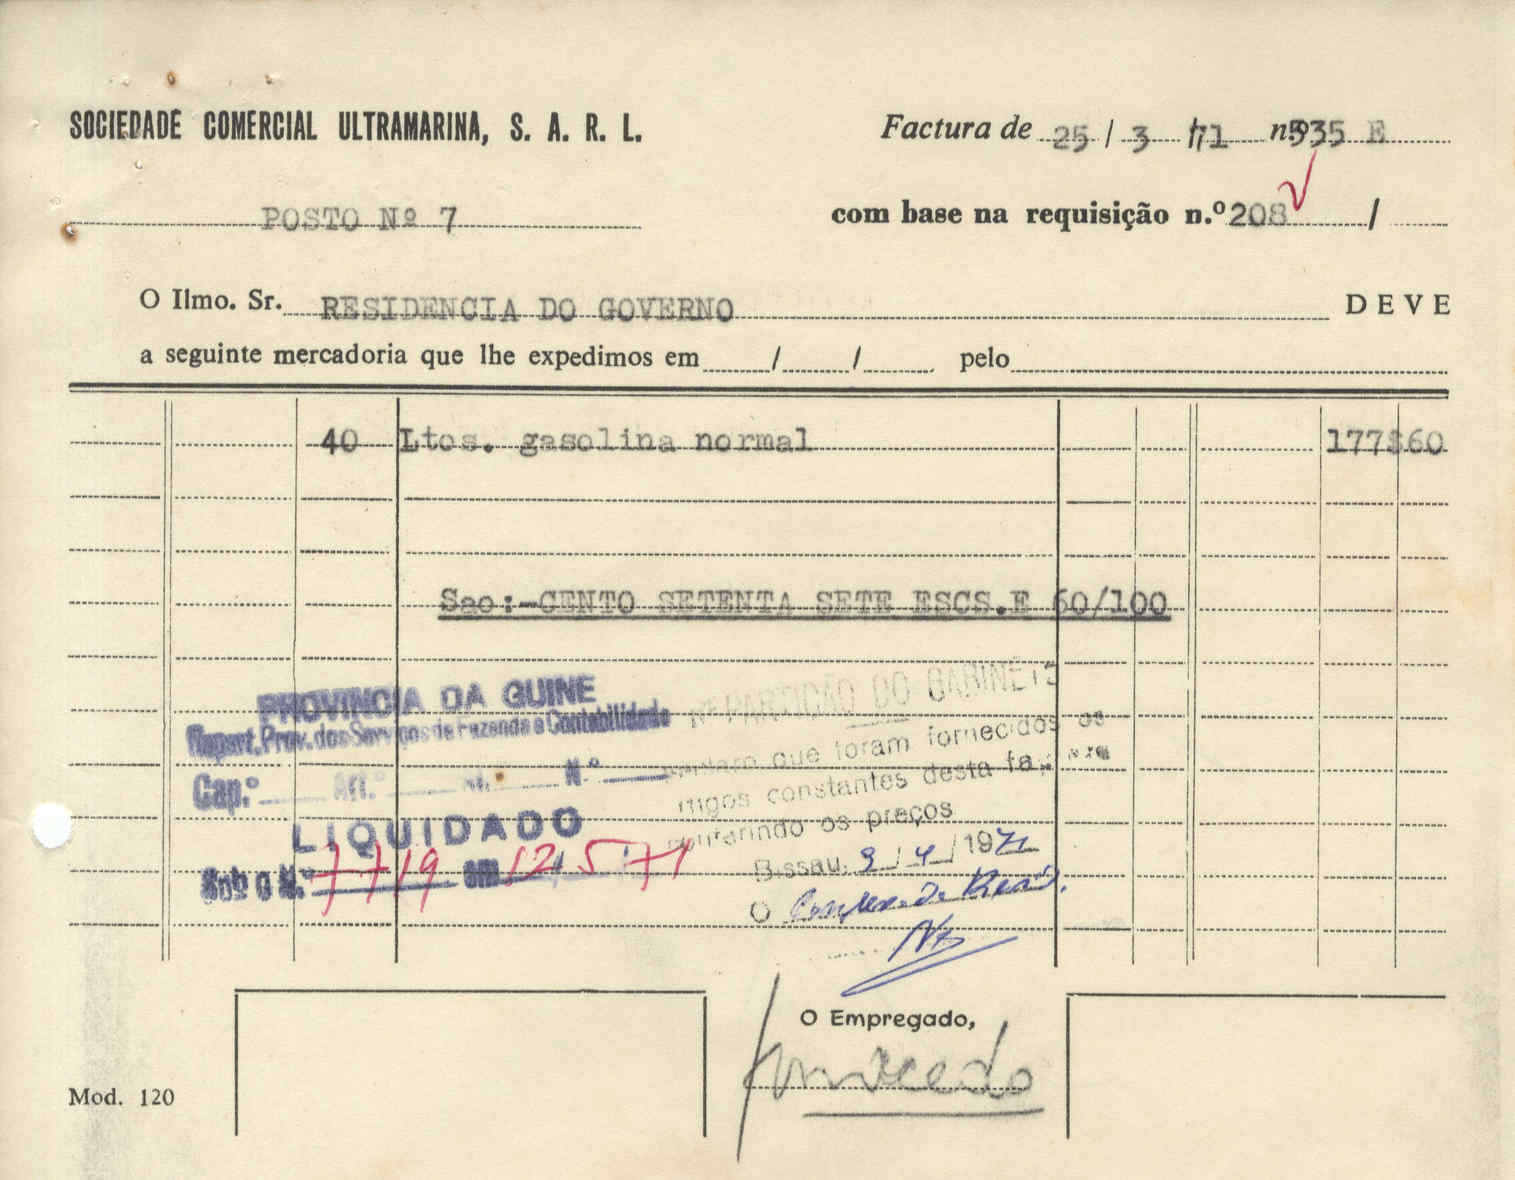 SOCIEDADE COMERCIAL ULTRAMARINA, S. A. R. L.
Factura de 25 / 3 /71 nº 535 E
POSTO Nº 7
com base na requisição n.º 208 /
O Ilmo. Sr. RESIDENCIA DO GOVERNO DEVE
a seguinte mercadoria que lhe expedimos em / / pelo
40 Ltos. gasolina normal 177$60
Sao:-CENTO SETENTA SETE ESCS.E 60/100
PROVINCIA DA GUINE
Repart. Prov. dos Serviços de Fazenda e Contabilidade
Cap.º Art.º N.º
LIQUIDADO
Sob o N.º 7719 em 12 5 71
REPARTIÇÃO DO GABINETE
que foram fornecidos os
constantes desta
os preços
Bissau, 9 / 4 / 1971
O
O Empregado,
Mod. 120